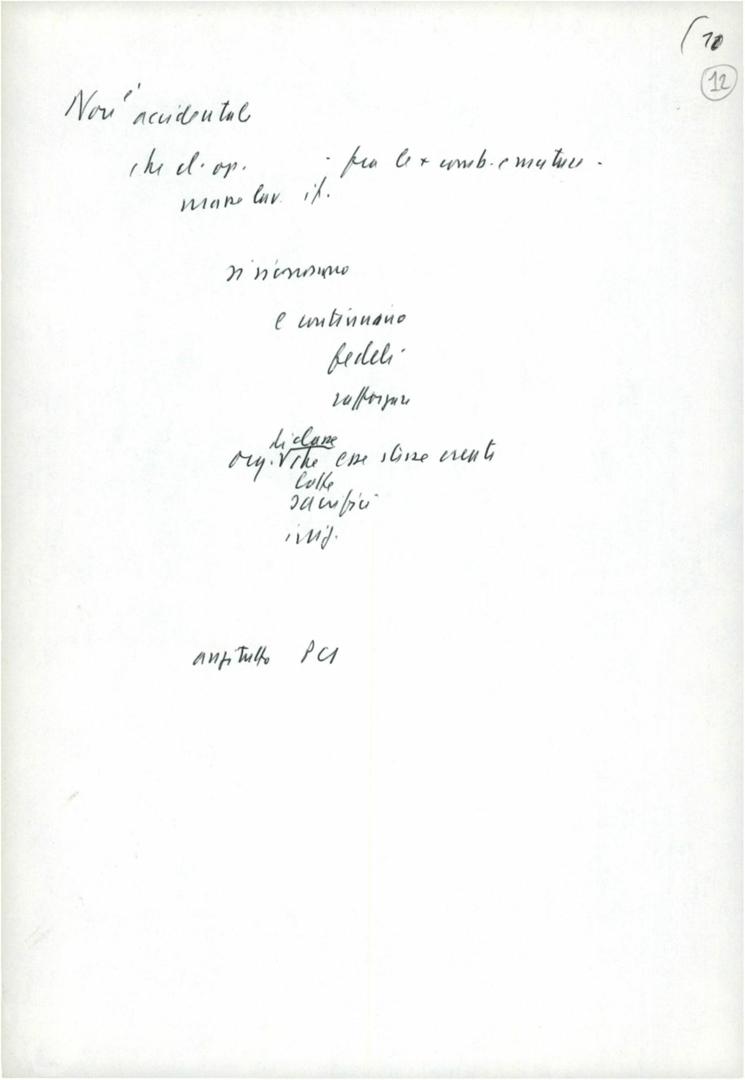 (10
12
Non è accidentale
che cl. op. - fra le + comb. e mature -
masse lav. it.
si riconoscono
e continuano
fedeli
rafforzare
di classe
org. V che esse stesse create
lotte
sacrifici
intellig.
anzitutto PCI